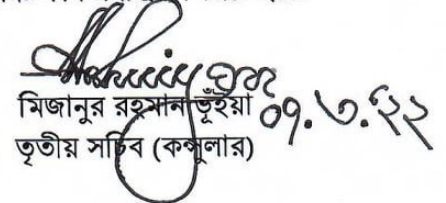 মিজানুর রহমান ভূঁইয়া
০৭.৩.২২
তৃতীয় সচিব (কন্সুলার)